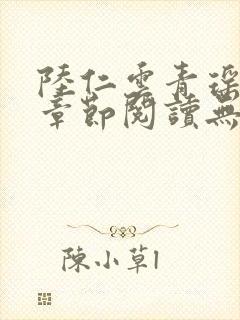 陸仁雲青瑶
章節閱讀無
陳小草1